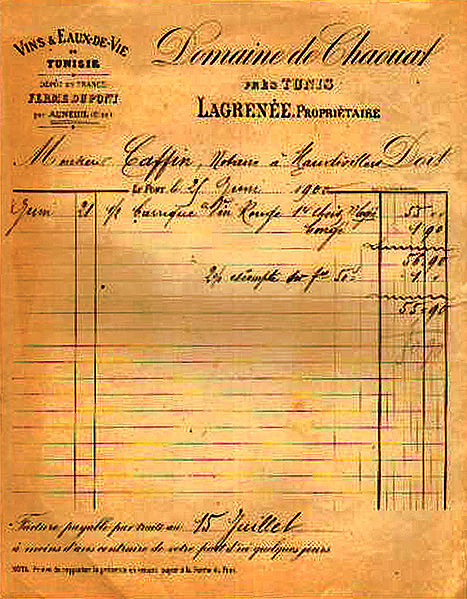 VINS & EAUX-DE-VIE
DE
TUNISIE
DÉPÔT EN FRANCE
FERME DU PONT
par AUNEUIL (Oise)
Domaine de Chaouat
PRÈS TUNIS
LAGRENÉE, PROPRIÉTAIRE
Monsieur Caffin, Notaire à Haudivillers Doit
Le Pont, le 25 Juin 1900
Juin 21 1/2 barrique Vin Rouge 1er choix 55 00
Congé 1 90
56 90
2% escompte sur f. 50 1 00
55 90
Facture payable par traite au 15 Juillet
à moins d'avis contraire de votre part d'ici quelques jours
NOTA. Prière de rapporter la présente en venant payer à la Ferme du Pont.